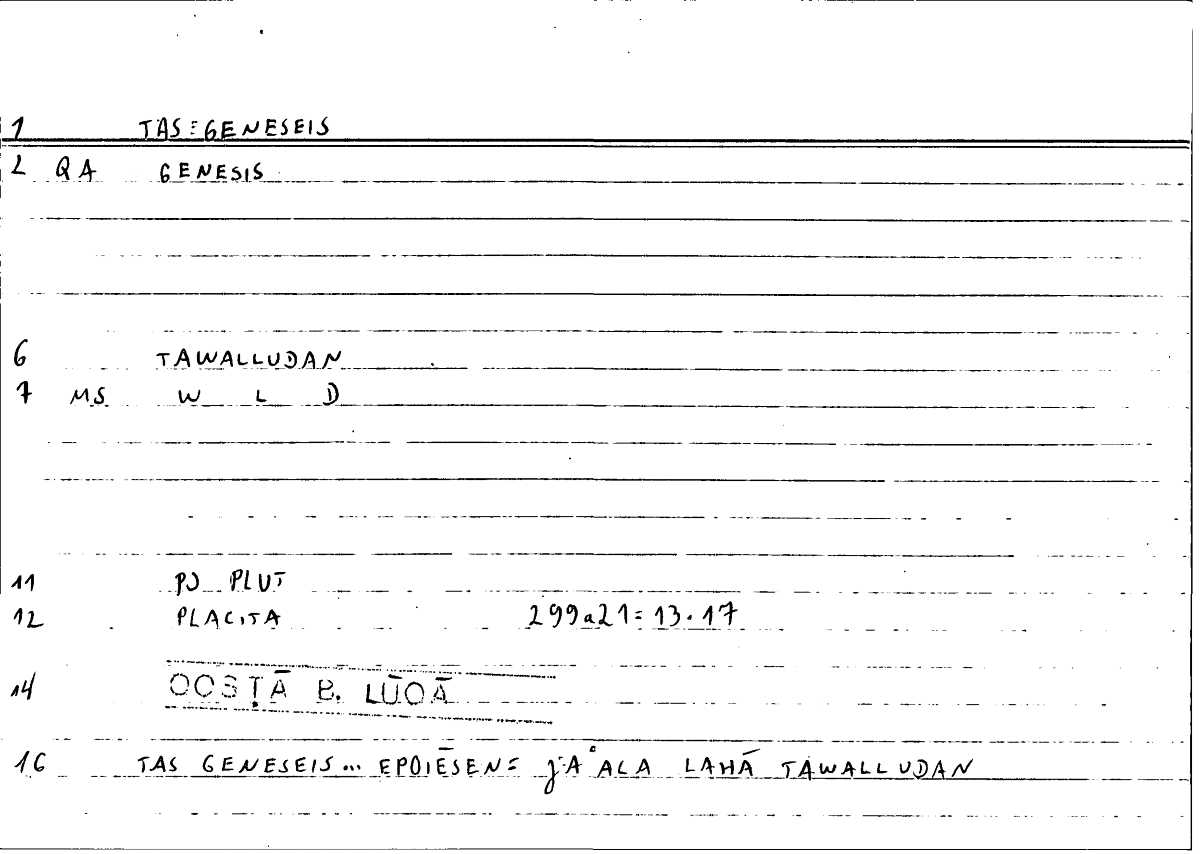 1 TAS GENESEIS
2 QA GENESIS
6 TAWALLUDAN
7 MS W L D
11 PS PLUT
12 PLACITA 299a21= 13.17
14 QOSṬĀ B. LŪQĀ
16 TAS GENESEIS... EPOIĒSEN= ǦAʿALA LAHĀ TAWALLUDAN